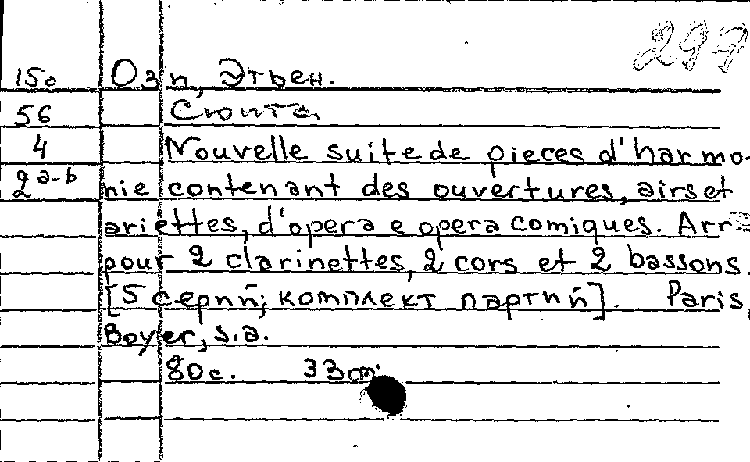 297
15е Ози, Этьен.
56 Сюита.
4 Nouvelle suite de pieces d'harmo-
2 a-b nie contenant des ouvertures, airs et
ariettes, d'opera e opera comiques. Arr
pour 2 clarinettes, 2 cors et 2 bassons.
[5 серий; комплект партий]. Paris,
Boyer, s.a.
80с. 33cm